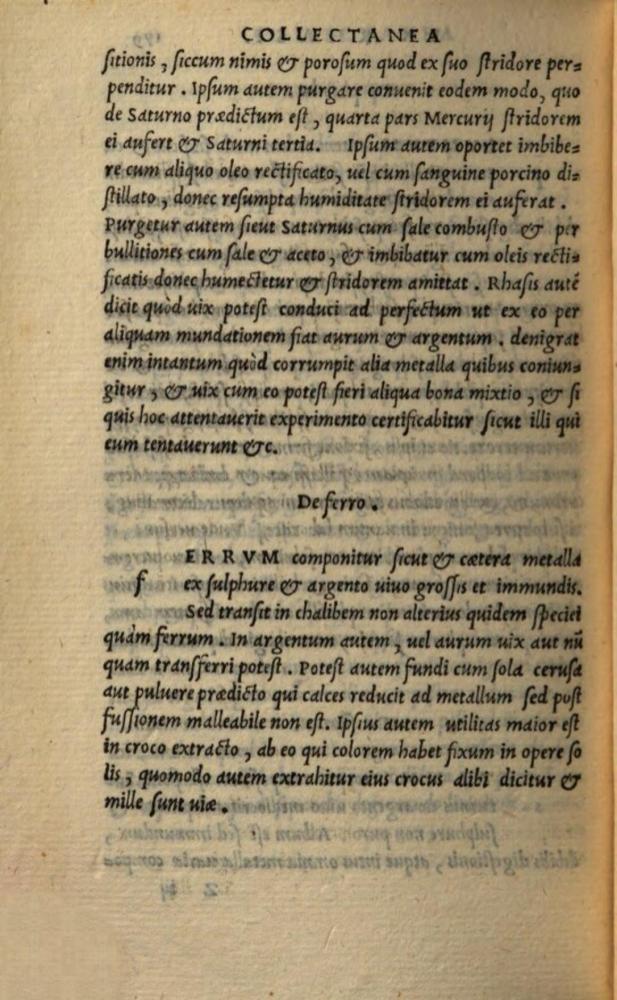 COLLECTANEA
ſitionis, ſiccum nimis & poroſum quod ex ſuo ſtridore per=
penditur. Ipſum autem purgare conuenit eodem modo, quo
de Saturno prædictum eſt, quarta pars Mercurij ſtridorem
ei aufert & Saturni tertia. Ipſum autem oportet imbibe=
re cum aliquo oleo rectificato, uel cum ſanguine porcino di=
ſtillato, donec reſumpta humiditate ſtridorem ei auferat.
Purgetur autem ſicut Saturnus cum ſale combuſto & per
bullitiones cum ſale & aceto, & imbibatur cum oleis recti=
ficatis donec humectetur & ſtridorem amittat. Rhaſis autē
dicit quòd uix poteſt conduci ad perfectum ut ex eo per
aliquam mundationem fiat aurum & argentum. denigrat
enim intantum quòd corrumpit alia metalla quibus coniun=
gitur, & uix cum eo poteſt fieri aliqua bona mixtio, & ſi
quis hoc attentauerit experimento certificabitur ſicut illi qui
eum tentauerunt &c.
De ferro.
ERRVM componitur ſicut & cætera metalla
f ex ſulphure & argento uiuo groſſis et immundis.
Sed tranſit in chalibem non alterius quidem ſpeciei
quàm ferrum. In argentum autem, uel aurum uix aut nū
quam transferri poteſt. Poteſt autem fundi cum ſola ceruſa
aut puluere prædicto qui calces reducit ad metallum ſed poſt
fuſſionem malleabile non eſt. Ipſius autem utilitas maior eſt
in croco extracto, ab eo qui colorem habet fixum in opere ſo
lis, quomodo autem extrahitur eius crocus alibi dicitur &
mille ſunt uiæ.